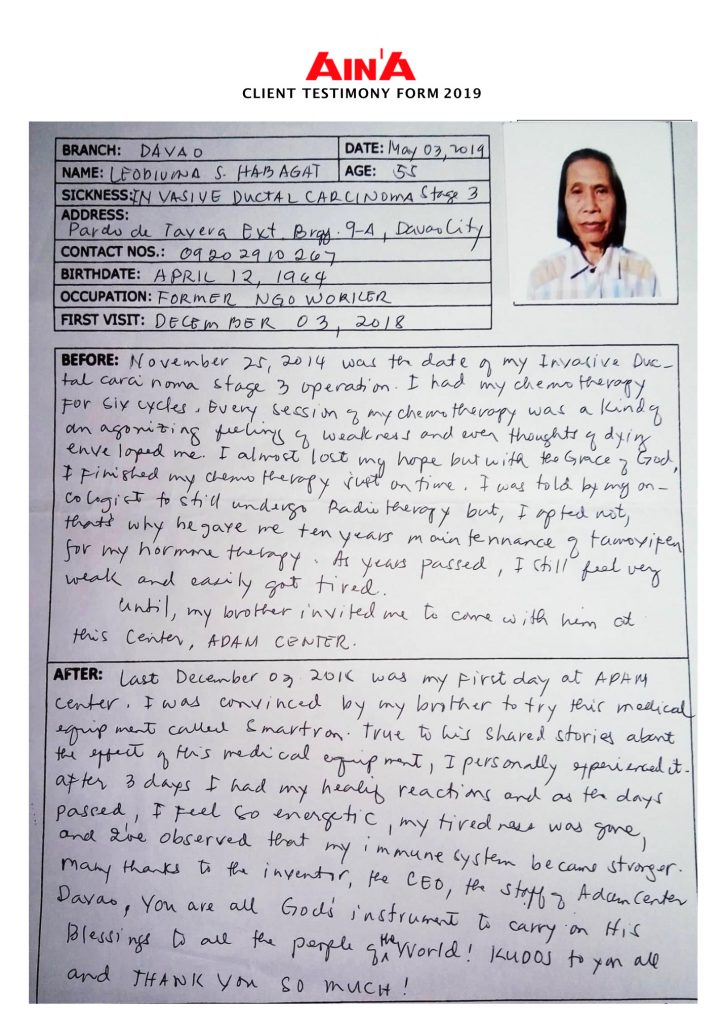 AIN'A
CLIENT TESTIMONY FORM 2019
BRANCH: DAVAO DATE: May 03, 2019
NAME: LEODIVINA S. HABAGAT AGE: 55
SICKNESS: INVASIVE DUCTAL CARCINOMA Stage 3
ADDRESS:
Pardo de Tavera Ext. Brgy. 9-A, Davao City
CONTACT NOS.: 0920 2910 267
BIRTHDATE: APRIL 12, 1964
OCCUPATION: FORMER NGO WORKER
FIRST VISIT: DECEMBER 03, 2018
BEFORE: November 25, 2014 was the date of my Invasive Duc-
tal carcinoma stage 3 operation. I had my chemotherapy
for six cycles. Every session of my chemotherapy was a kind of
an agonizing feeling of weakness and even thoughts of dying
enveloped me. I almost lost my hope but with the Grace of God,
I finished my chemotherapy just on time. I was told by my on-
cologist to still undergo Radiotherapy but, I opted not,
that's why he gave me ten years maintennance of tamoxifen
for my hormone therapy. As years passed, I still feel very
weak and easily got tired.
Until, my brother invited me to come with him at
this Center, ADAM CENTER.
AFTER: Last December 03 was my first day at ADAM
center. I was convinced by my brother to try this medical
equipment called Smartron. True to his shared stories about
the effect of this medical equipment, I personally experienced it.
after 3 days I had my healing reactions and as the days
passed, I feel so energetic, my tiredness was gone,
and I've observed that my immune system became stronger.
Many thanks to the inventor, the CEO, the staff of Adam Center
Davao, You are all God's instrument to carry on His
Blessings to all the people of the World! KUDOS to you all
and THANK YOU SO MUCH!